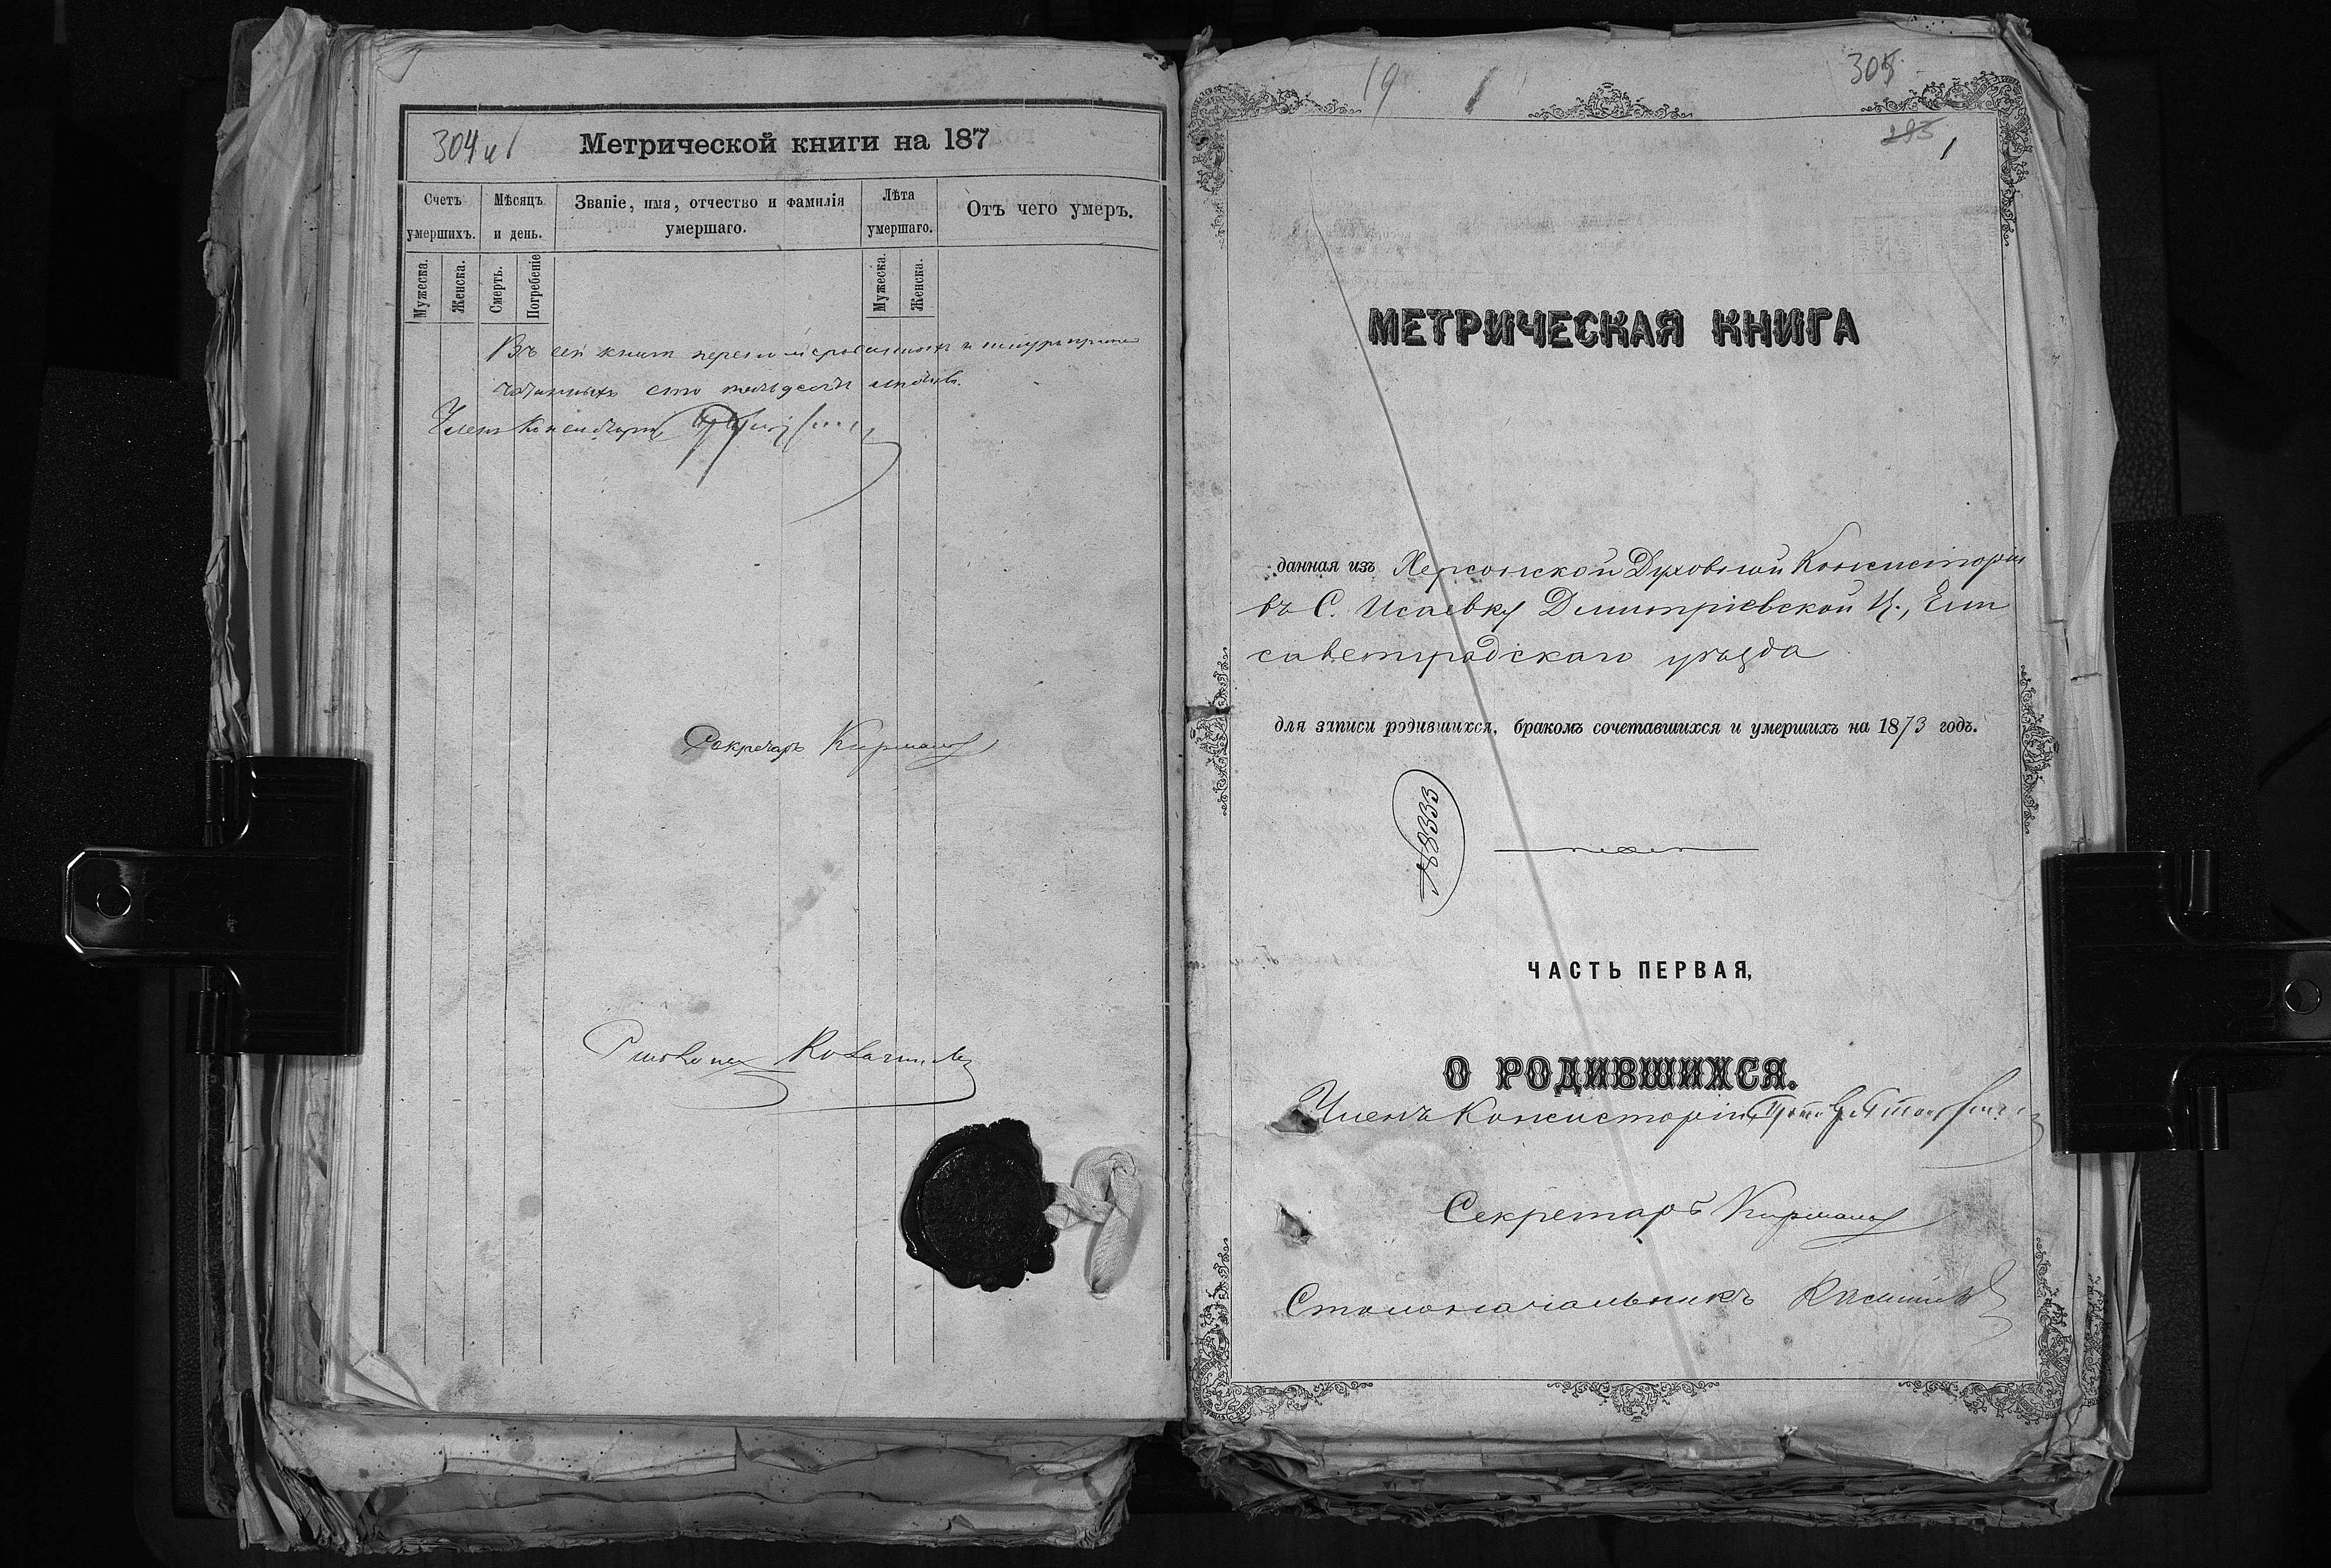 304
Метрической книги на 187
Счетъ умершихъ.
Мѣсяцъ и день.
Званіе, имя, отчество и фамилія умершаго.
Лѣта умершаго.
Отъ чего умеръ.
Мужеска.
Женска.
Смерть.
Погребеніе
Мужеска.
Женска.
Въ сей книгѣ
сто
Членъ Консисторіи
Секретарь
19 1
305
293 1
МЕТРИЧЕСКАЯ КНИГА
данная изъ Херсонской Духовной Консисторіи
въ С. Исаевку Димитріевской Ц., Ели
саветградскаго уѣзда
для записи родившихся, бракомъ сочетавшихся и умершихъ на 1873 годъ.
№ 8333
ЧАСТЬ ПЕРВАЯ,
О РОДИВШИХСЯ.
Членъ Консисторіи
Секретарь
Столоначальникъ